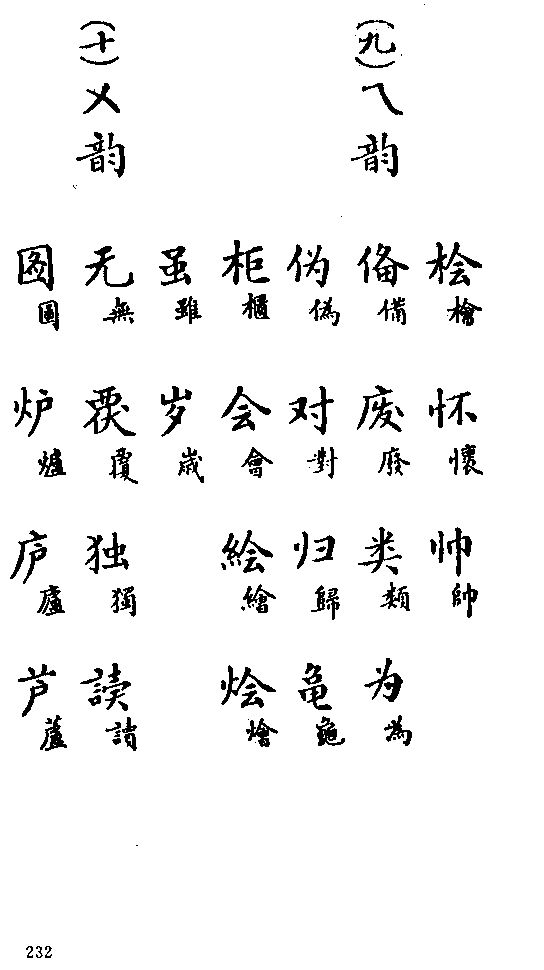 桧 檜 怀 懷 帅 帥
(九)ㄟ韵
俻 備 废 廢 类 類 为 為
伪 偽 对 對 归 歸 龟 龜
柜 櫃 会 會 絵 繪 烩 燴
虽 雖 岁 歲
(十)ㄨ韵
无 無 覆 独 獨 读 讀
图 圖 炉 爐 庐 廬 芦 蘆
232